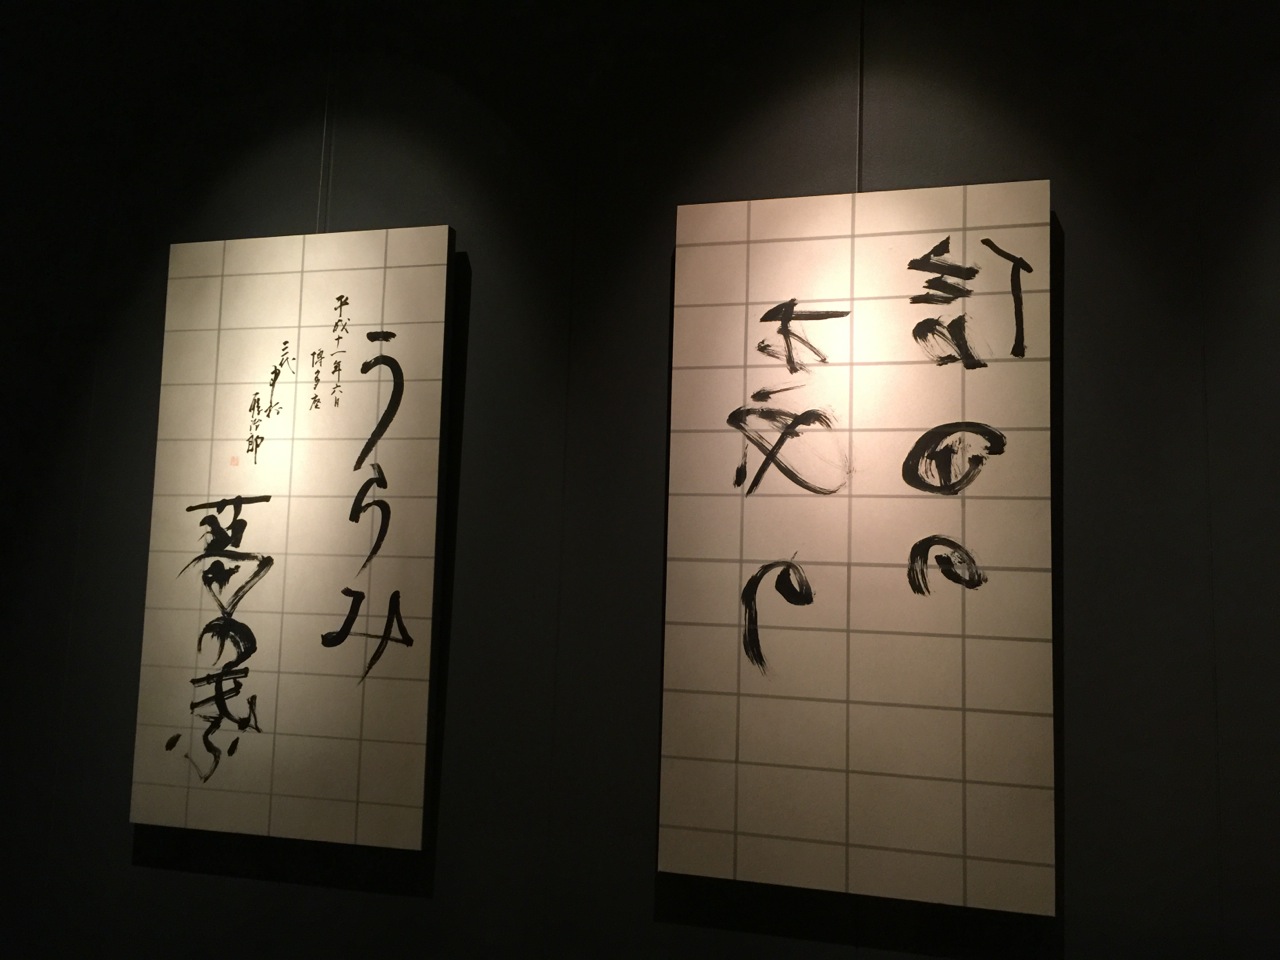 信田の
森の
うらみ
平成十一年六月
博多座
三代
中村
鴈治郎
葛の葉